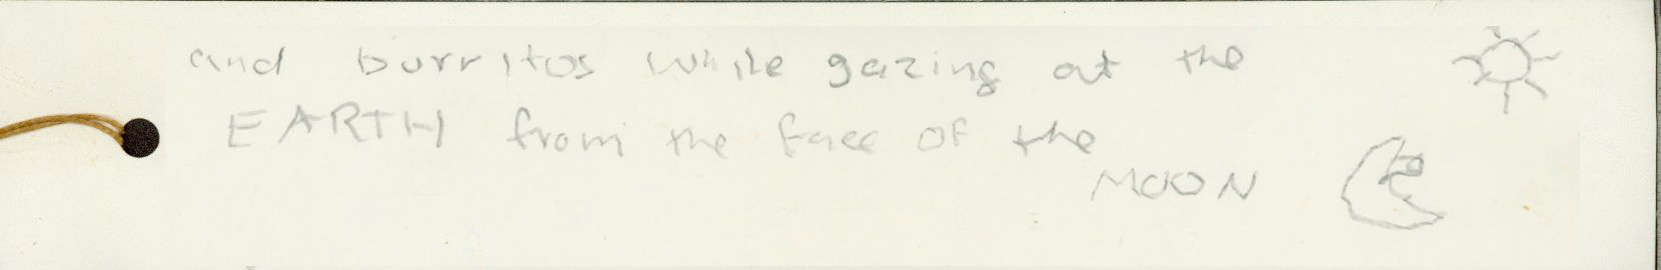 and burritos while gazing at the
EARTH from the face OF the
MOON